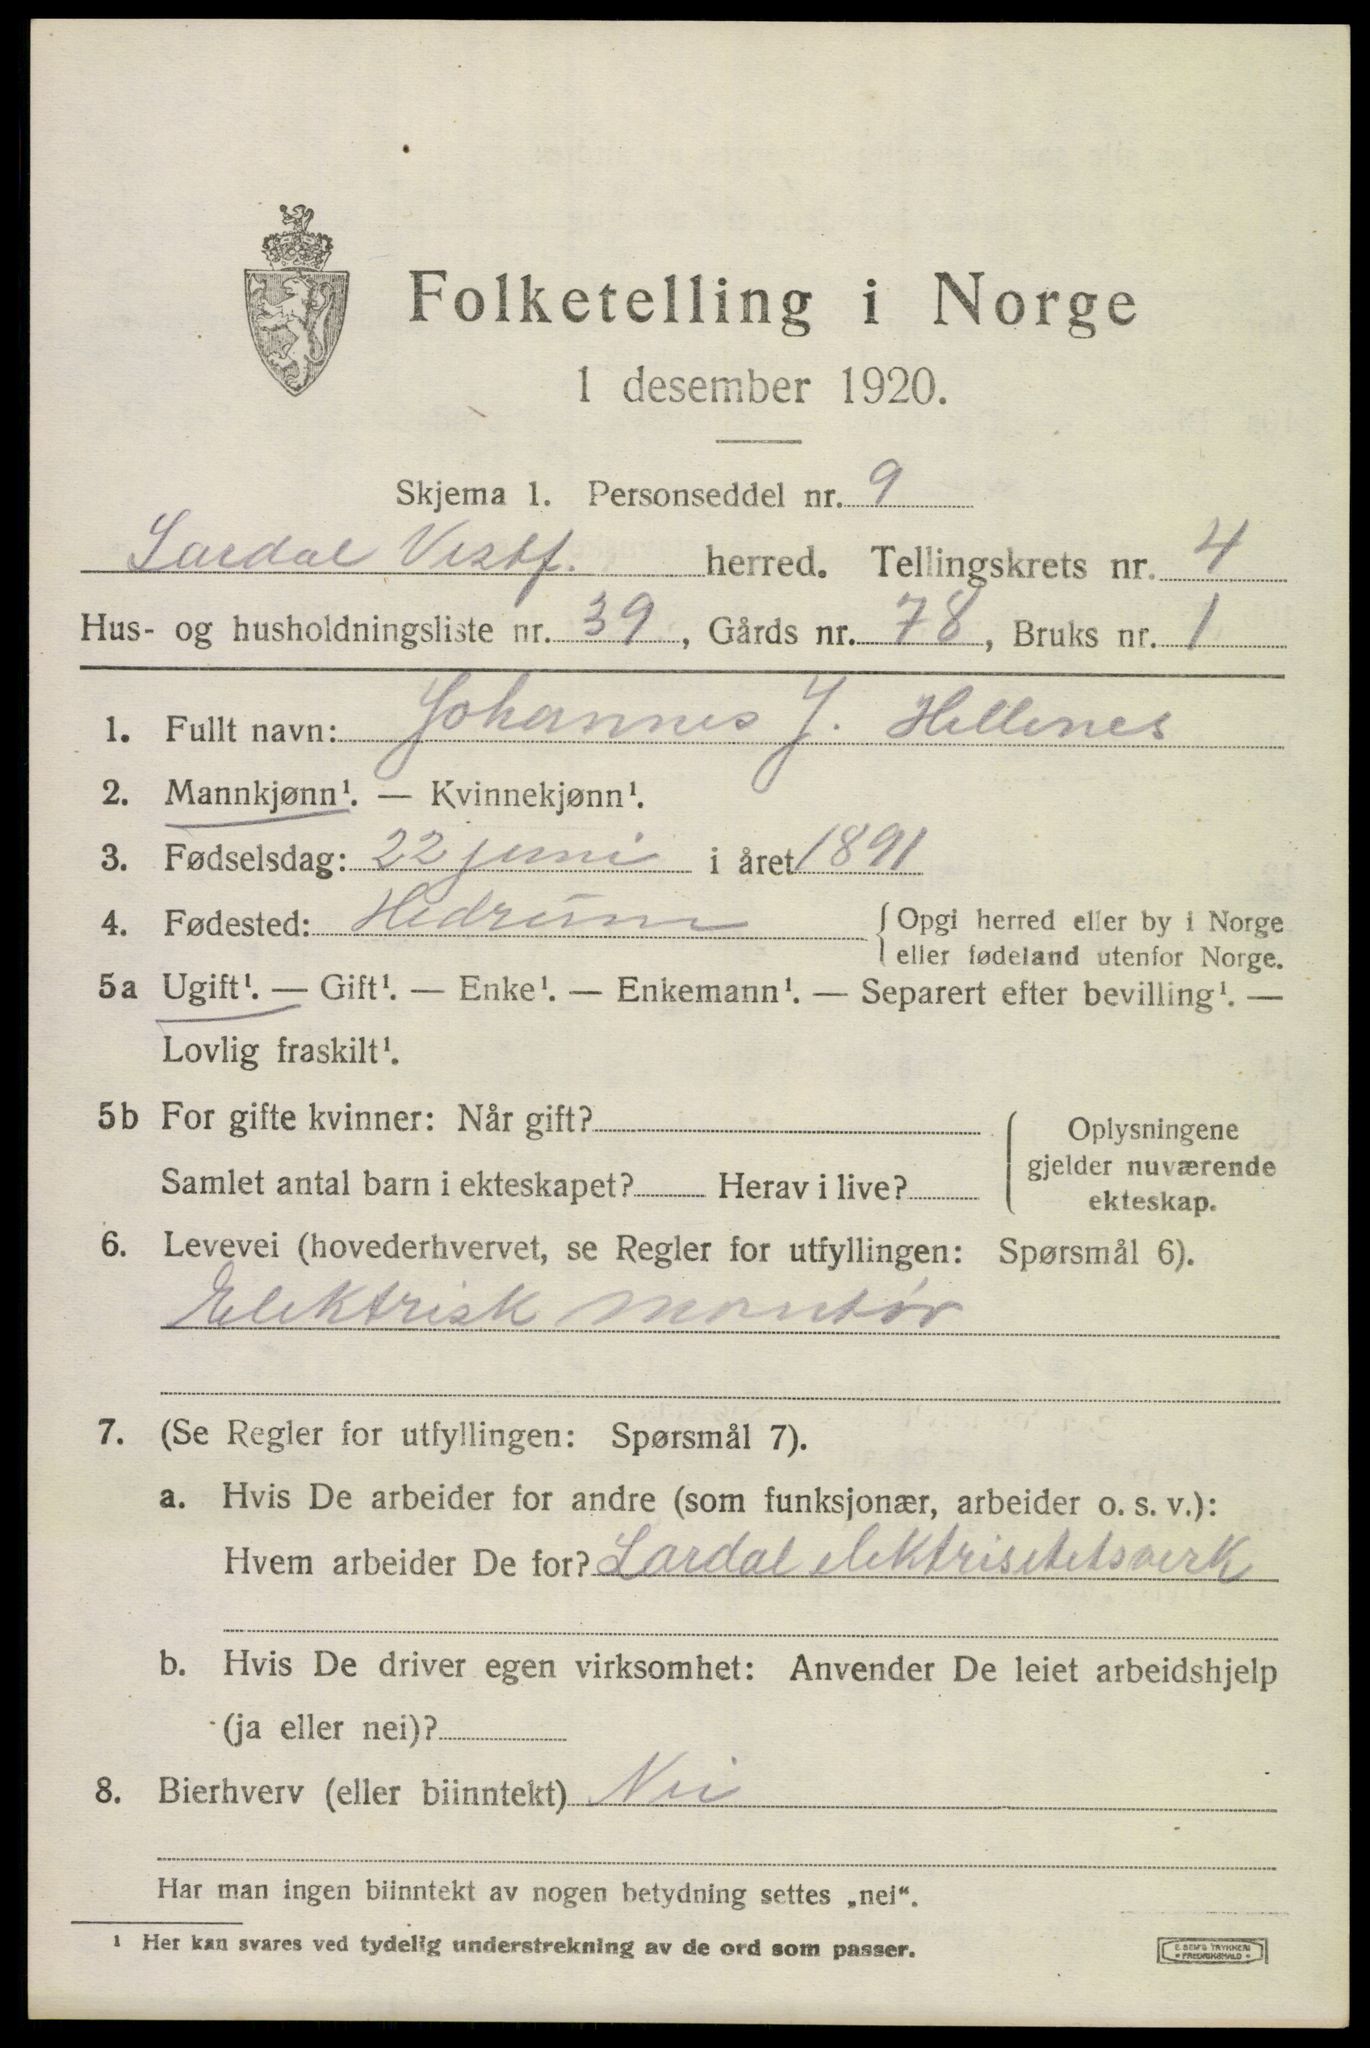 Folketelling i Norge
1 desember 1920.
Skjema 1. Personseddel nr. 9
Lardal Vestf. herred. Tellingskrets nr. 4
Hus- og husholdningsliste nr. 39, Gårds nr. 78, Bruks nr. 1
1. Fullt navn: Johannes J. Hellenes
2. Mannkjønn¹. — Kvinnekjønn¹.
3. Fødselsdag: 22 juni i året 1891
4. Fødested: Hedrum { Opgi herred eller by i Norge
eller fødeland utenfor Norge.
5a Ugift¹. — Gift¹. — Enke¹. — Enkemann¹. — Separert efter bevilling¹. —
Lovlig fraskilt¹.
5b For gifte kvinner: Når gift?
Samlet antal barn i ekteskapet? Herav i live?
Oplysningene
gjelder nuværende
ekteskap.
6. Levevei (hovederhvervet, se Regler for utfyllingen: Spørsmål 6).
Elektrisk montør
7. (Se Regler for utfyllingen: Spørsmål 7).
a. Hvis De arbeider for andre (som funksjonær, arbeider o. s. v.):
Hvem arbeider De for? Lardal elektrisitetsverk
b. Hvis De driver egen virksomhet: Anvender De leiet arbeidshjelp
(ja eller nei)?
8. Bierhverv (eller biinntekt) Nei
Har man ingen biinntekt av nogen betydning settes „nei“.
¹ Her kan svares ved tydelig understrekning av de ord som passer.
E. SEM'S TRYKKERI
FREDRIKSHALD